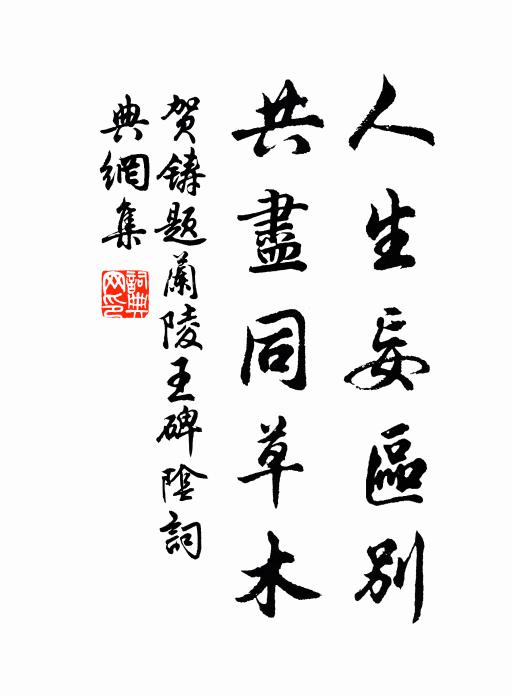 人生妄區別
共盡同草木
賀鑄題蘭陵王碑陰詞
典網集
詞典網印